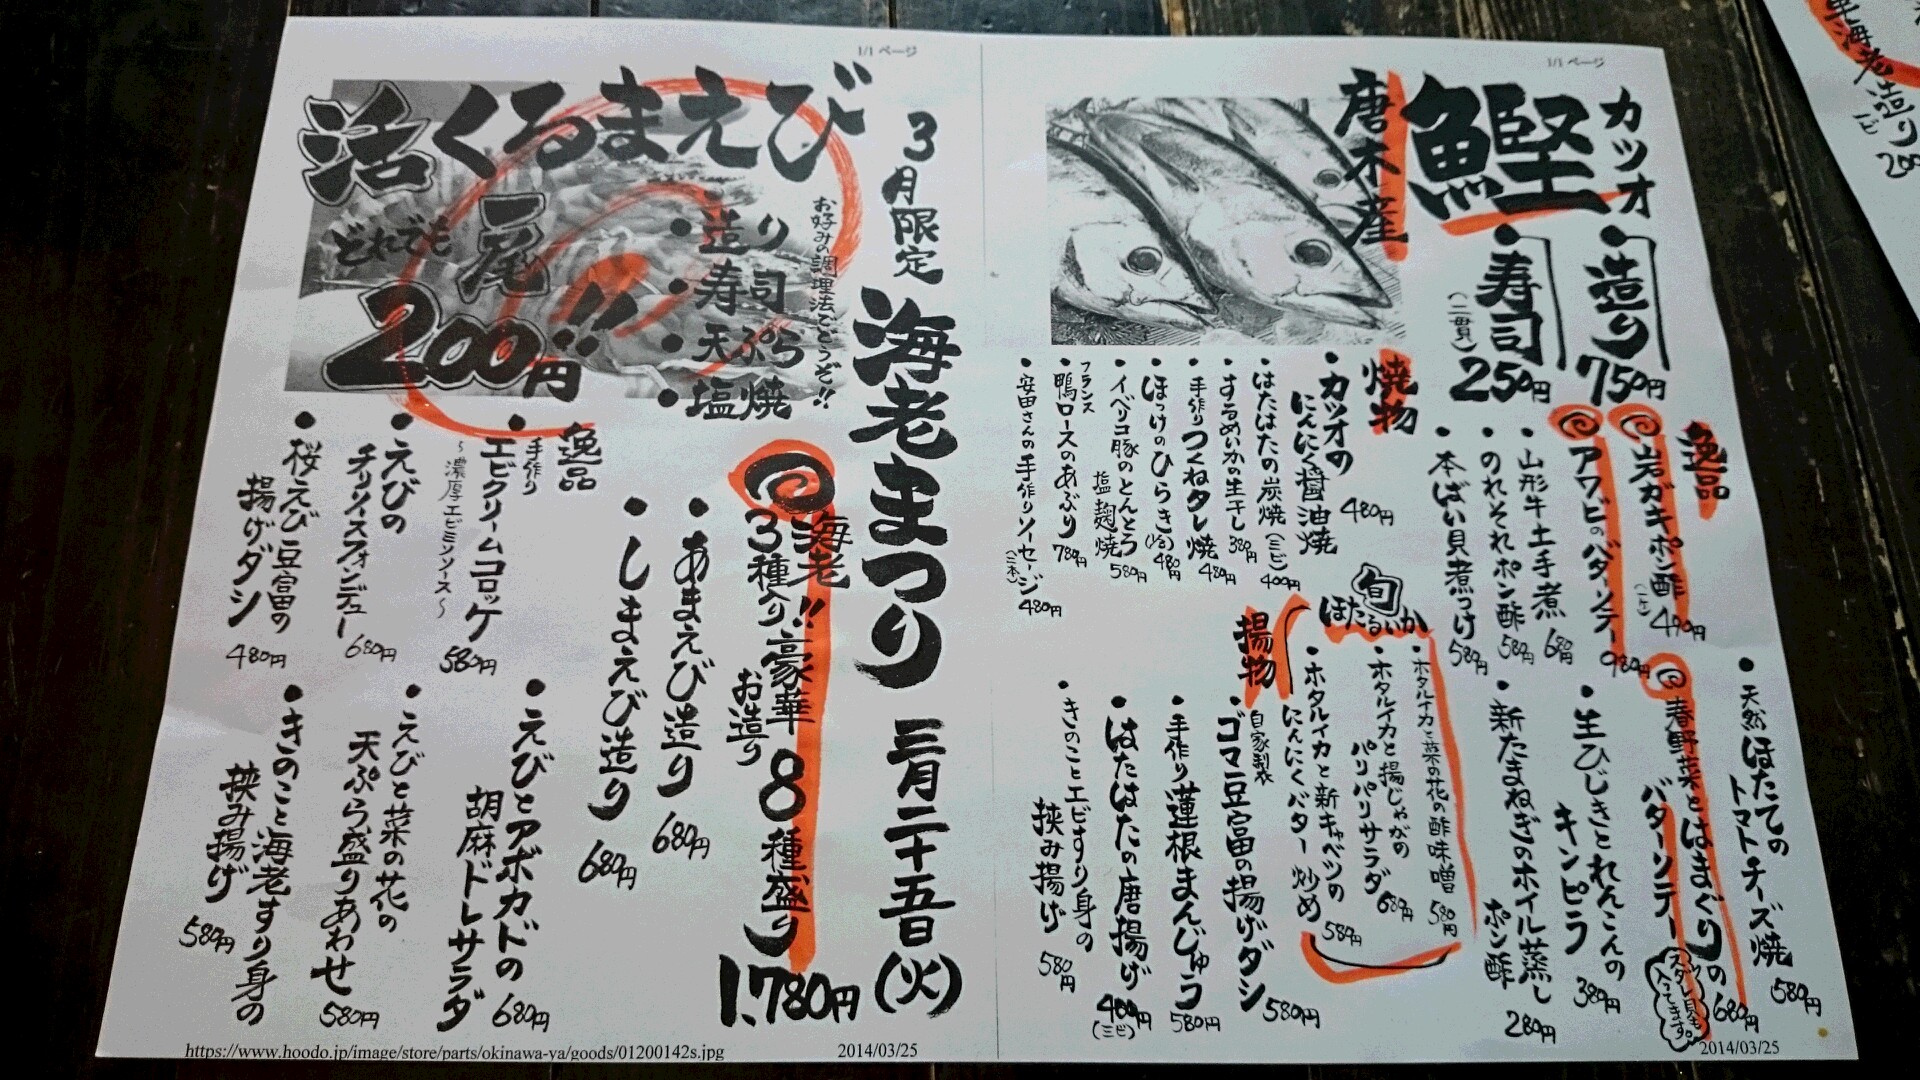 1/1 ページ
カツオ
鰹
唐木産
・造り
750円
・寿司
(二貫)
250円
逸品
・岩ガキポン酢
(一ケ)
490円
・アワビのバターソテー
980円
・山形牛土手煮
680円
・のれそれポン酢
580円
・本ばい貝煮つけ
580円
・天然ほたての
トマトチーズ焼
580円
春野菜とはまぐりの
バターソテー
680円
・生ひじきとれんこんの
キンピラ
380円
・新たまねぎのホイル蒸し
ポン酢
280円
焼物
・カツオの
にんにく醤油焼
480円
・はたはたの炭焼(三ビ)
400円
・するめいかの生干し
380円
・手作りつくねタレ焼
480円
・ほっけのひらき
480円
・イベリコ豚のとんとろ
塩麹焼
580円
・フランス
鴨ロースのあぶり
780円
・安田さんの手作りソーセージ
(二本)
480円
旬
ほたるいか
・ホタルイカと菜の花の酢味噌
580円
・ホタルイカと揚じゃがの
パリパリサラダ
680円
・ホタルイカと新キャベツの
にんにくバター炒め
580円
揚物
・自家製
ゴマ豆富の揚げダシ
580円
・手作り蓮根まんじゅう
580円
・はたはたの唐揚げ
480円
(三ビ)
・きのことエビすり身の
挟み揚げ
580円
2014/03/25
1/1 ページ
3月限定
海老まつり
三月二十五日(火)
活くるまえび
どれでも
一尾
200円!!
お好みの調理法でどうぞ!!
・造り
・寿司
・天ぷら
・塩焼
海老
3種入り!!豪華8種盛り
お造り
1,780円
・あまえび造り
680円
・しまえび造り
680円
逸品
・手作り
エビクリームコロッケ
～濃厚エビミソソース～
580円
・えびの
チリソースフォンデュー
680円
・桜えび豆富の
揚げダシ
480円
・えびとアボカドの
胡麻ドレサラダ
680円
・えびと菜の花の
天ぷら盛りあわせ
580円
・きのこと海老すり身の
挟み揚げ
580円
https://www.hoodo.jp/image/store/parts/okinawa-ya/goods/01200142s.jpg
2014/03/25